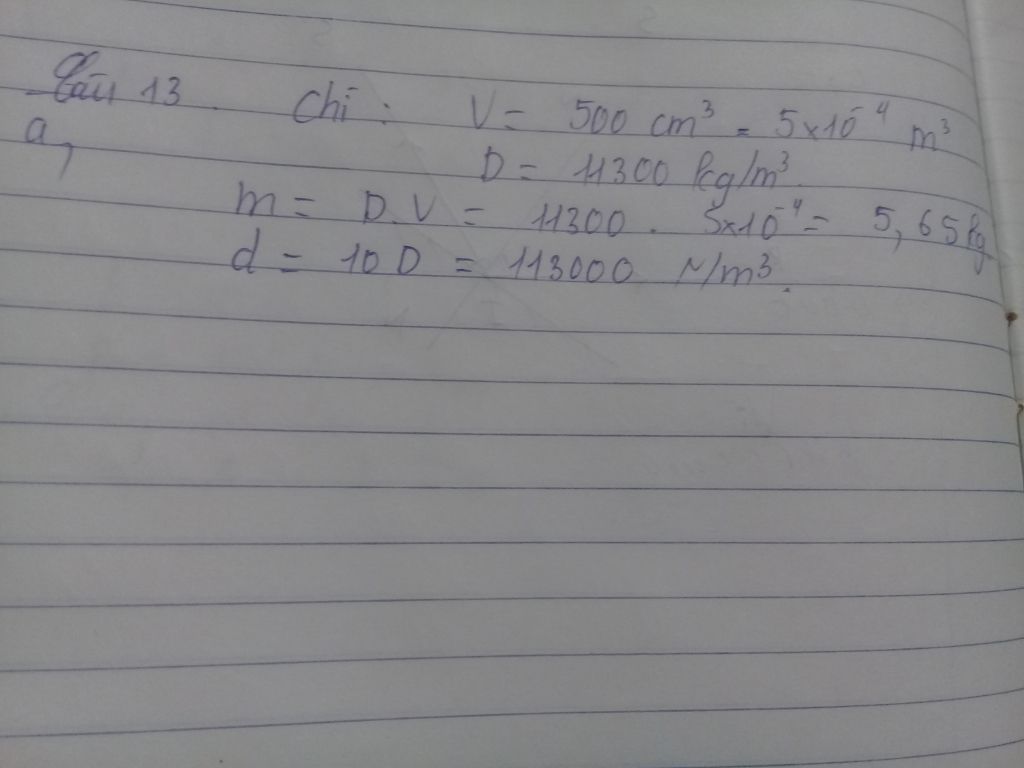 Câu 13. Chì: V = 500 cm³ = 5x10⁻⁴ m³
a, D = 11300 kg/m³.
m = D.V = 11300. 5x10⁻⁴ = 5,65kg
d = 10D = 113000 N/m³.